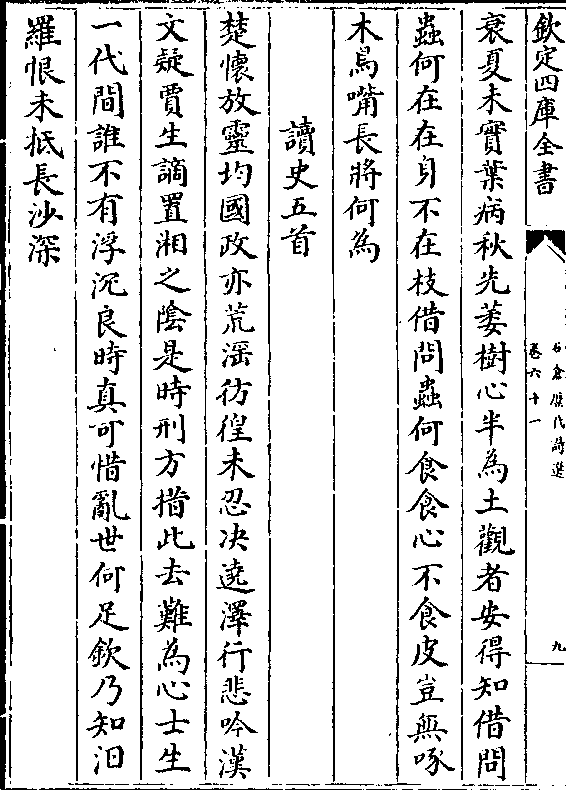 欽定四庫全書
石倉歷代詩選
卷六十一
九
衰夏未實葉病秋光萎樹心半為土觀者安得知借問
蟲何在在身不在枝借問蟲何食食心不食皮豈無啄
木鳥嘴長將何為
讀史五首
楚懷放靈均國政亦荒滛彷徨未忍決遶澤行悲吟漢
文疑賈生謫置湘之陰是時刑方措此去難為心士生
一代間誰不有浮沉良時真可惜亂世何足欽乃知汨
羅恨未抵長沙深